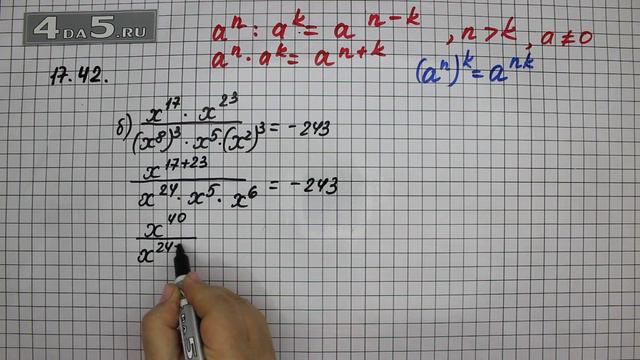 4DA5.RU
aⁿ : aᵏ = a ⁿ⁻ᵏ , n > k, a ≠ 0
aⁿ · aᵏ = aⁿ⁺ᵏ
(aⁿ)ᵏ = aⁿᵏ
17.42.
б) x¹⁷ · x²³ / (x⁸)³ · x⁵ · (x²)³ = -243
x¹⁷⁺²³ / x²⁴ · x⁵ · x⁶ = -243
x⁴⁰ / x²⁴⁺